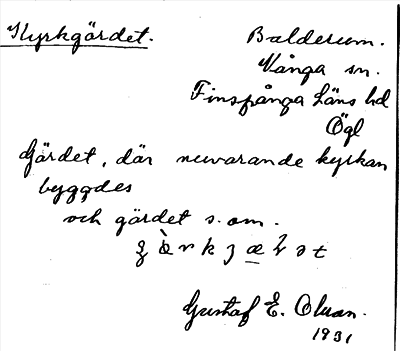 Kyrkgärdet.
Balderum.
Vånga sn.
Finspånga Läns hd
Ögl
Gärdet, där nuvarande kyrkan
byggdes
och gärdet s. om.
Gustaf E. Olsan.
1931